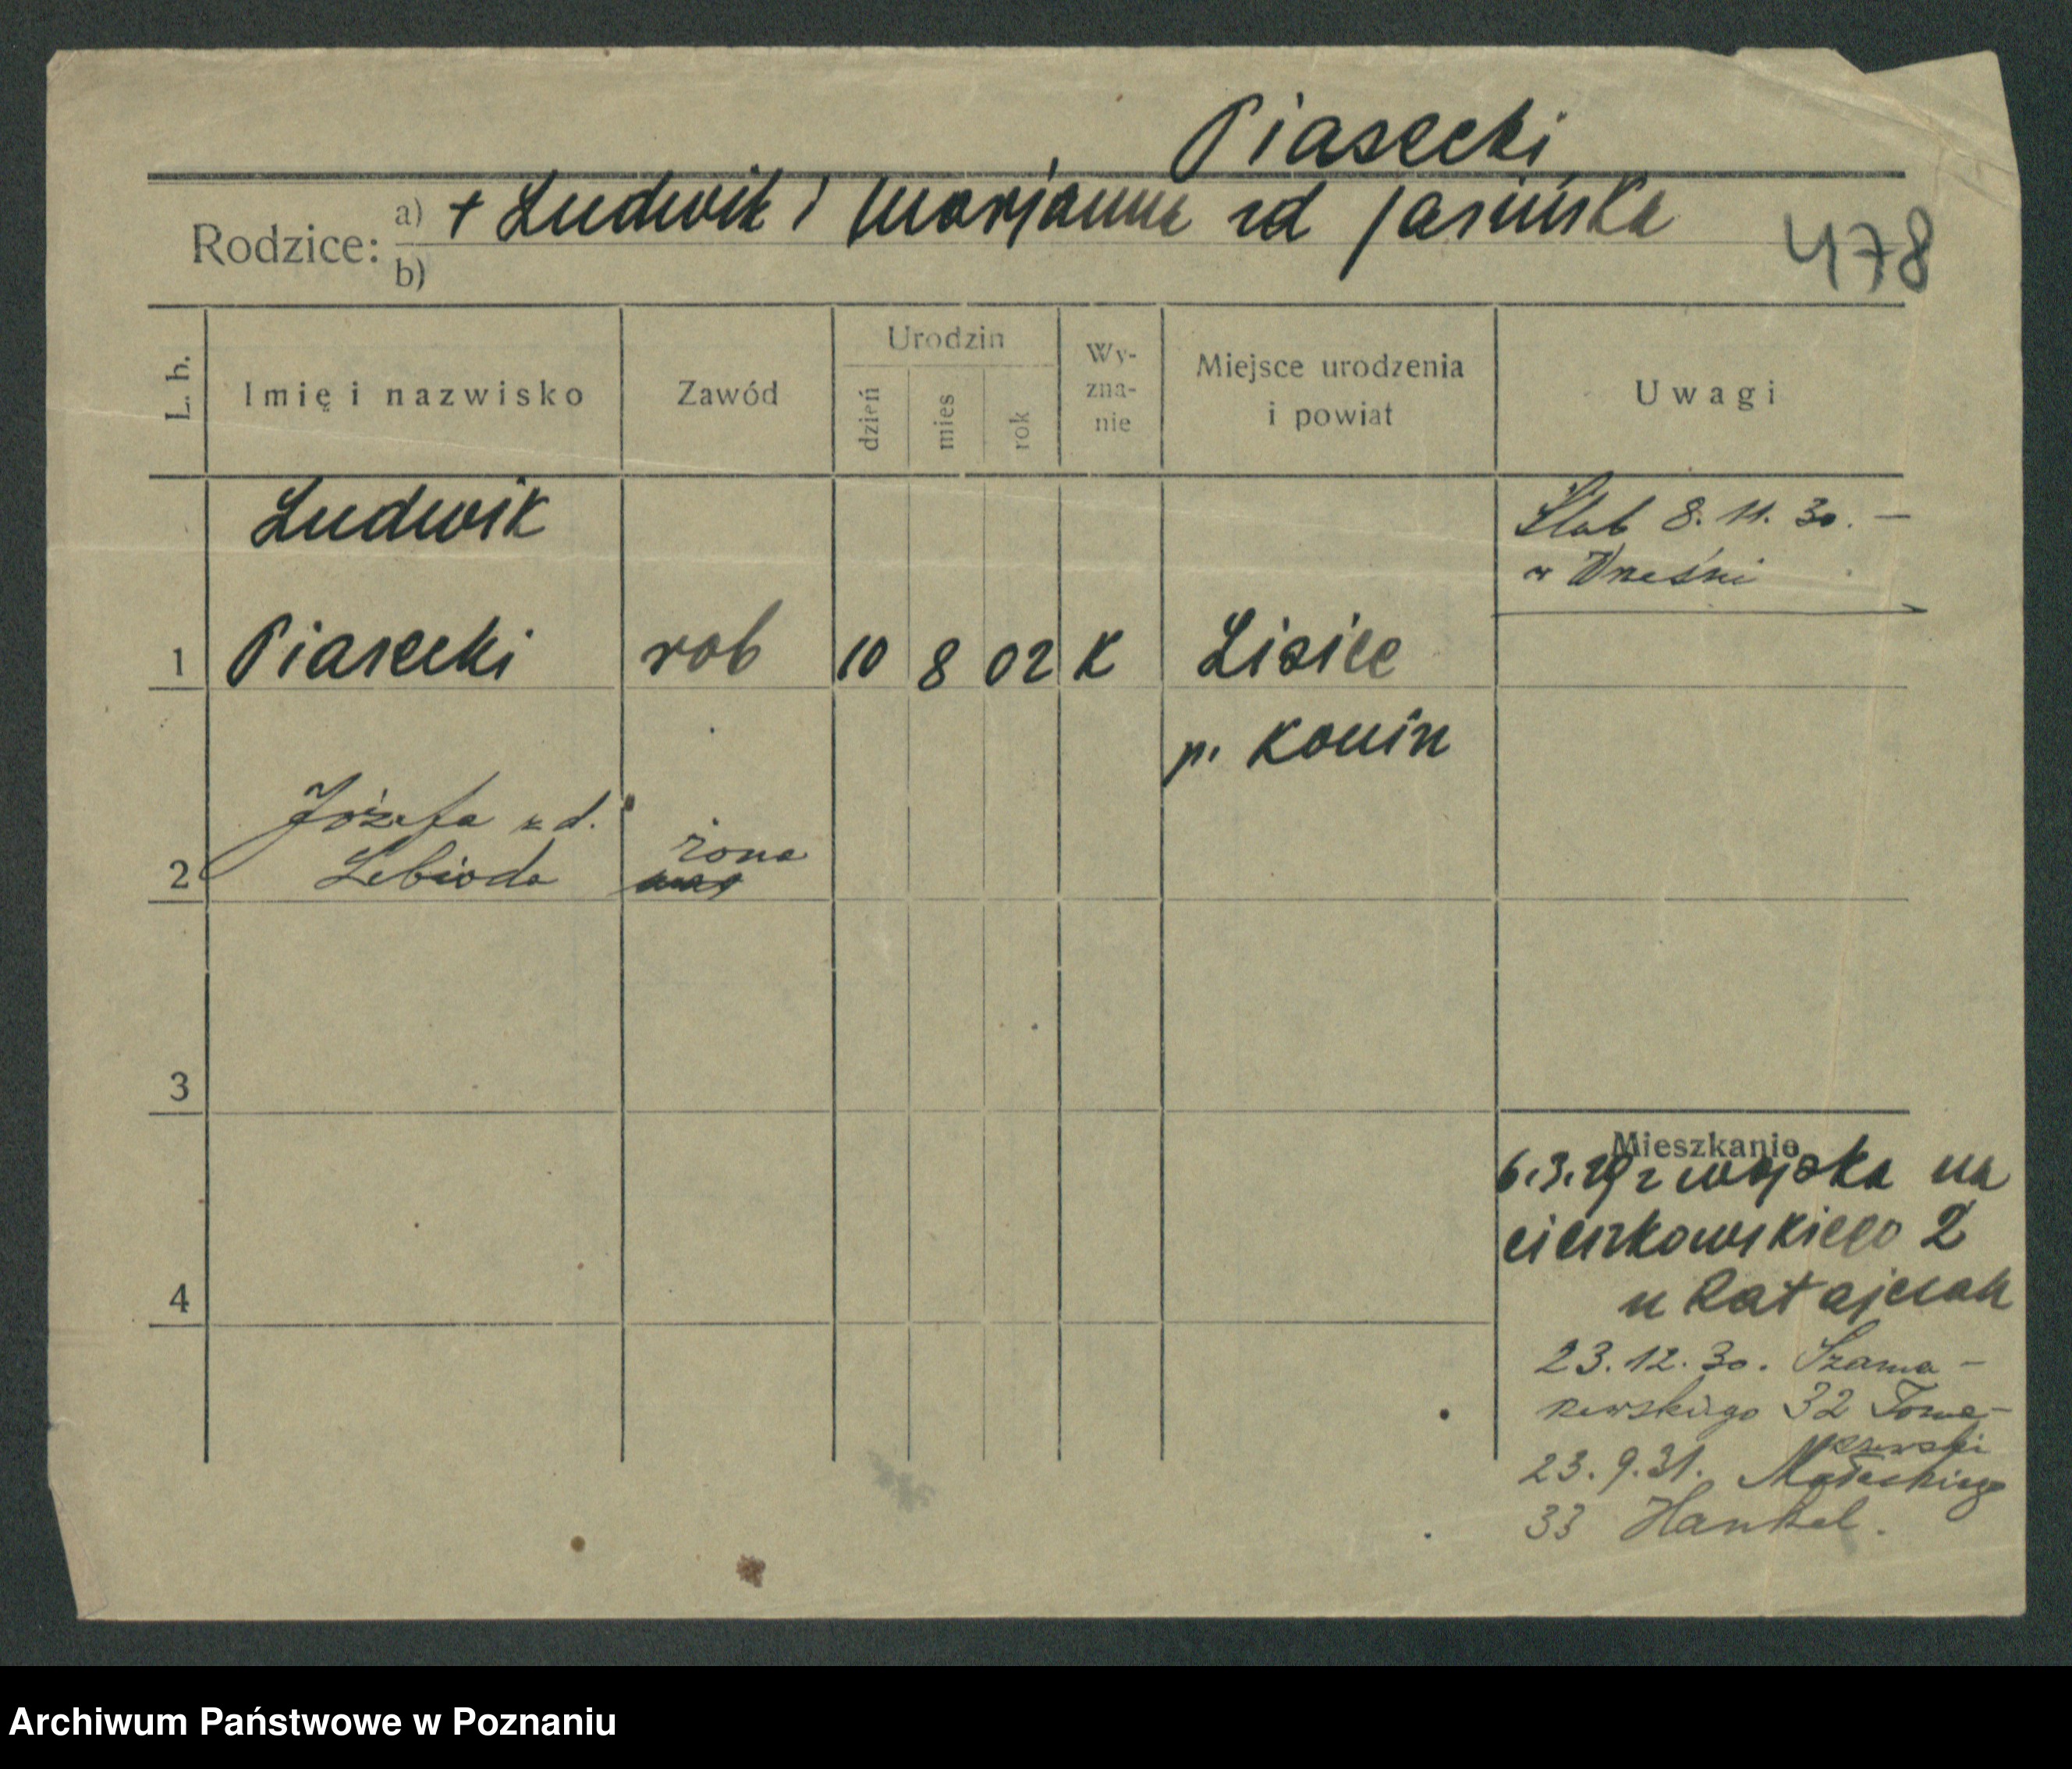 Piasecki
Rodzice: a) + Ludwik i Marjanna zd Jasińska
b)
478
L. b.
Imię i nazwisko
Zawód
Urodzin
dzień
mies
rok
Wy-
zna-
nie
Miejsce urodzenia
i powiat
Uwagi
Ludwik
Ślub 8. 11. 30. –
w Wrześni
1 Piasecki rob 10 8 02 K Lisiec
p. Konin
Józefa z d.
żona
2 Lebioda
3
Mieszkanie
6.3.29 z wojska na
Cieszkowskiego 2
4
u Ratajczak
23.12.30. Szama-
rzewskiego 32 Toma-
szewski
23.9.31. Małeckiego
33 Hankel.
Archiwum Państwowe w Poznaniu